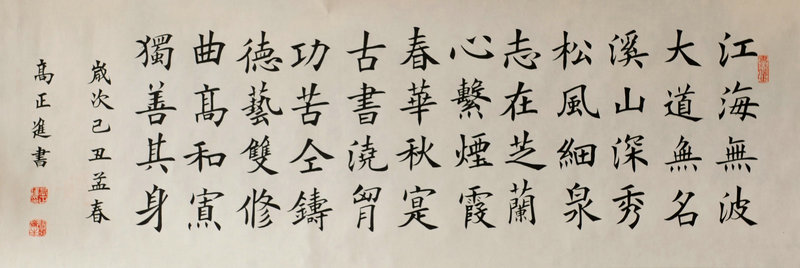 江海無波
大道無名
溪山深秀
松風細泉
志在芝蘭
心繫煙霞
春華秋寔
古書澆胷
功苦仝鑄
徳藝雙修
曲髙和寡
獨善其身
歲次己丑孟春
髙正進書